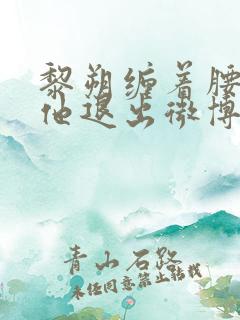 黎朔缠着腰
他退出微博
青山石路
未经同意禁止转载